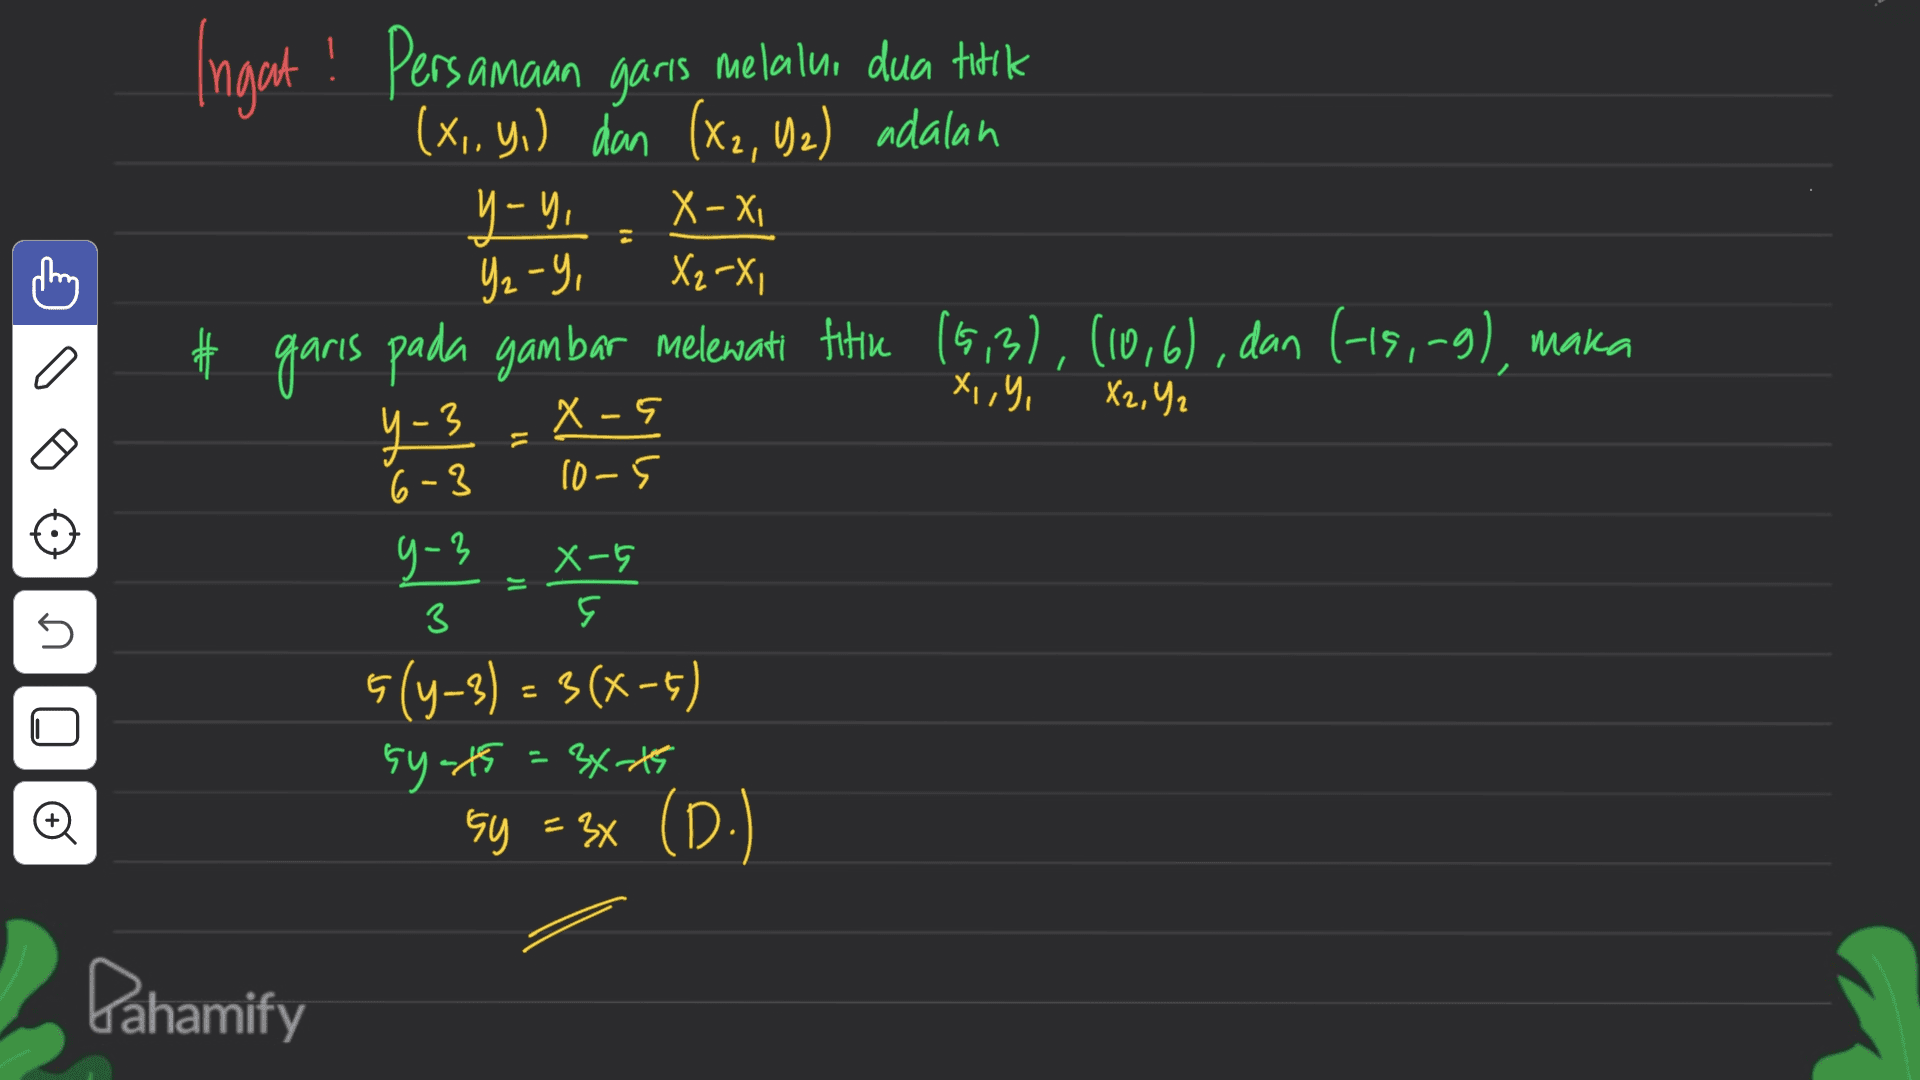 Ingat! Persamaan garis melalui dua titik
(x₁, y₁) dan (x₂, y₂) adalah
y - y₁ / y₂ - y₁ = x - x₁ / x₂ - x₁
# garis pada gambar melewati titik (5,3), (10,6), dan (-15,-9), maka
x₁, y₁ x₂, y₂
y - 3 / 6 - 3 = x - 5 / 10 - 5
y - 3 / 3 = x - 5 / 5
5(y-3) = 3(x-5)
5y - 15 = 3x - 15
5y = 3x (D.)
Pahamify